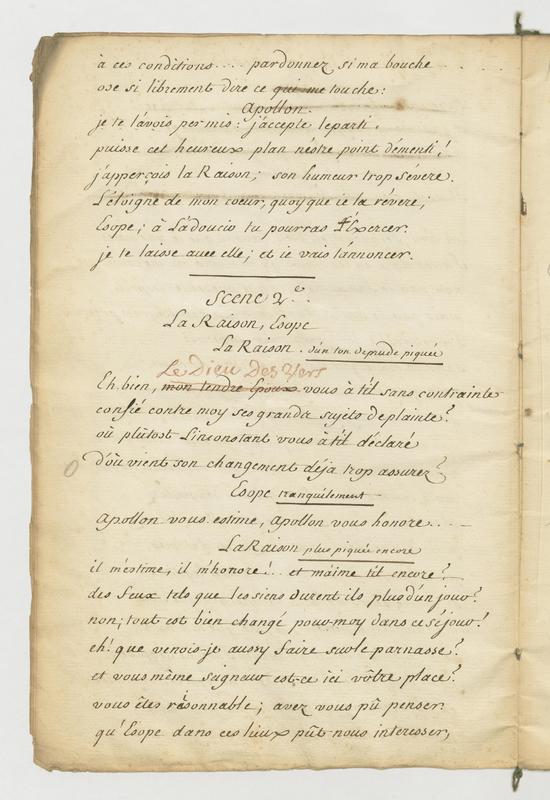 à ces conditions .... pardonnez si ma bouche
ose si librement dire ce qui me touche:
Apollon.
je te l'avois permis: j'accepte le parti.
puisse cet heureux plan n'éstre point démenti!
j'apperçois la Raison; son humeur trop sévere.
L'éloigne de mon coeur, quoy que ie la révere;
Esope; à L'adoucir tu pourras t'éxercer.
je te laisse avec elle; et ie vais l'annoncer.
Scene 2e.
La Raison, Esope
La Raison. d'un ton de prude piquée
Le Dieu Des Vers
Eh bien, mon tendre Epoux vous à t'il sans contrainte
confié contre moy ses grands sujets de plainte?
où plûtost L'inconstant vous à t'il déclaré
d'où vient son changement déja trop assuré?
Esope tranquilement
Apollon vous estime, Apollon vous honore....
La Raison plus piquée encore
il m'estime, il m'honore!.. et m'aime t'il encore?
des feux tels que les siens durent ils plus d'un jour?
non; tout est bien changé pour moy dans ce séjour!
eh! que venois-je aussy faire sur le parnasse?
et vous même seigneur est-ce ici vôtre place?
vous êtes raisonnable; avez vous pû penser
qu'Esope dans ces lieux pût nous interesser,